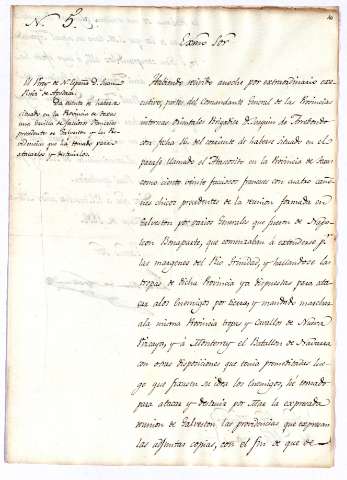 Nº 5º
Exmo Sor
El Virey de Na España D. Juan
Ruiz de Apodaca
Da cuenta de haberse
situado en la Provincia de Texas
una partida de facciosos Franceses
procedentes de Galveston y las Pro-
videncias que ha tomado para
atacarlos y destruirlos.
Habiendo recibido anoche por extraordinario exe-
cutivo, partes del Comandante General de las Provincias
internas orientales Brigadier D. Joaquin de Arredondo
con fecha del corriente de haberse situado en el
parage llamado el Atascosito en la Provincia de Texas
como ciento veinte facciosos franceses con cuatro caño-
nes chicos procedentes de la reunion formada en
Galveston por varios Generales que fueron de Napo-
leon Bonaparte, que comenzaban a extenderse pr
las margenes del Rio Trinidad, y hallandose las
tropas de dicha Provincia ya dispuestas para ata-
car a los Enemigos por tierra, y mandado marchar
a la misma Provincia tropas y Cavallos de Nueva
Vizcaya, y á Monterrey el Batallon de Navarra
con otras disposiciones que tenia premeditadas lue-
go que fuesen se idos los Enemigos, hé tomado
para atacar y destruir por Mar la expresada
reunion de Galveston las providencias que expresan
las adjuntas copias, con el fin de que de